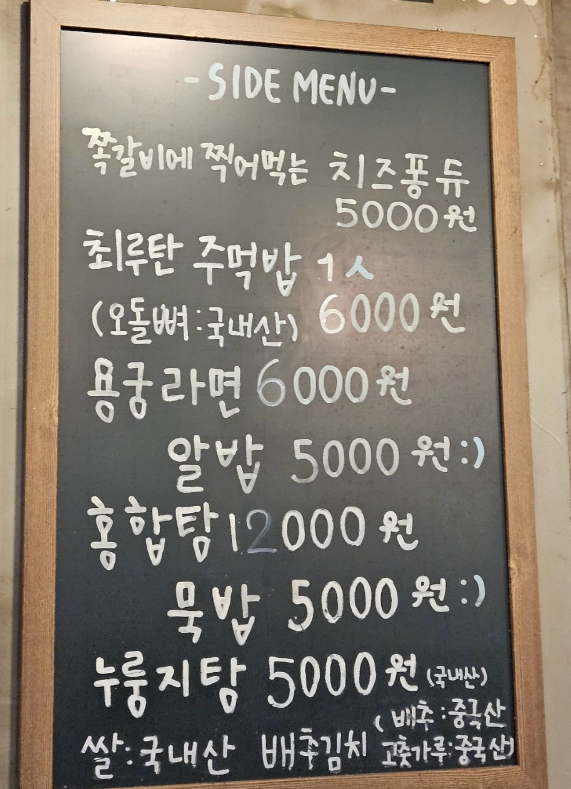 -SIDE MENU-
쪽갈비에 찍어먹는 치즈퐁듀
5000원
최루탄 주먹밥 1人
(오돌뼈:국내산) 6000원
용궁라면 6000원
알밥 5000원:)
홍합탕 12000원
묵밥 5000원:)
누룽지탕 5000원 (국내산)
쌀:국내산 배추김치 (배추:중국산
고춧가루:중국산)